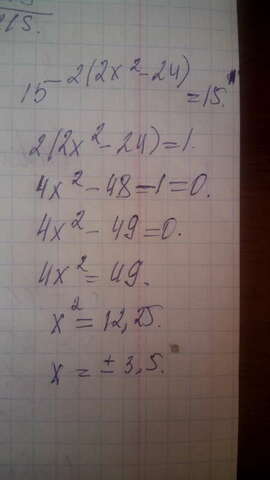 15^{-2(2x^2-24)}=15.
2(2x^2-24)=1.
4x^2-48-1=0.
4x^2-49=0.
4x^2=49.
x^2=12,25.
x=±3,5.